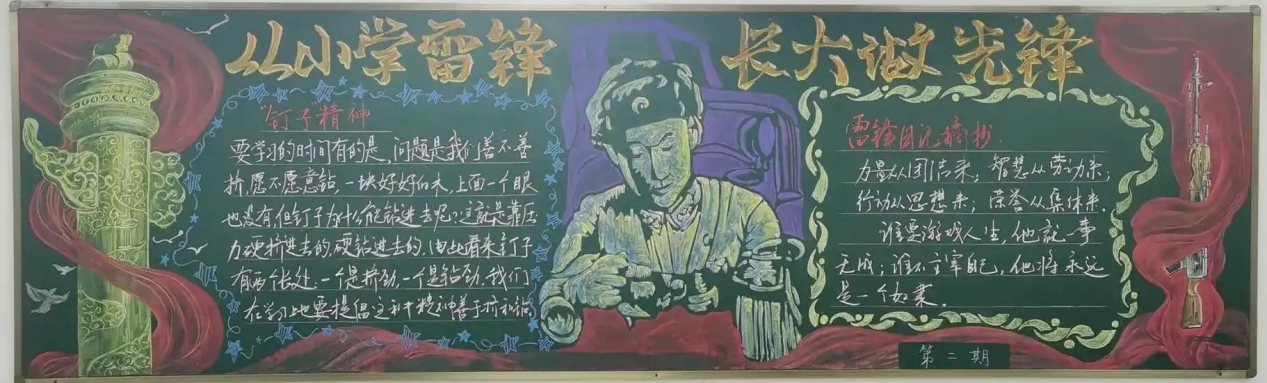 从小学雷锋
长大做先锋
“钉子”精神
要学习的时间有的是,问题是我们善不善
挤,愿不愿意钻。一块好好的木,上面一个眼
也没有但钉子为什么能钻进去呢?这就是靠压
力硬挤进去的,硬钻进去的,由此看来钉子
有两个长处:一个是挤劲,一个是钻劲。我们
在学习上也要提倡这种精神善于挤和钻。
雷锋日记摘抄
力量从团结来;智慧从劳动来;
行动从思想来;荣誉从集体来.
谁要游戏人生,他就一事
无成;谁不主宰自己,他将永远
是一个奴隶.
第二期